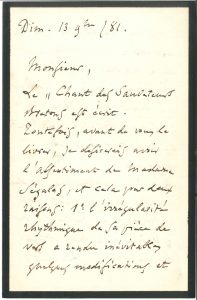 Dim. 13 9bre /81.
Monsieur,
Le "Chant des Sauveteurs
Bretons est écrit.
Toutefois, avant de vous le
livrer, je désirerais avoir
l'assentiment de Madame
Ségalas, et cela pour deux
raisons. 1° l'irrégularité
rhythmique de sa pièce de
vers a rendu inévitables
quelques modifications et